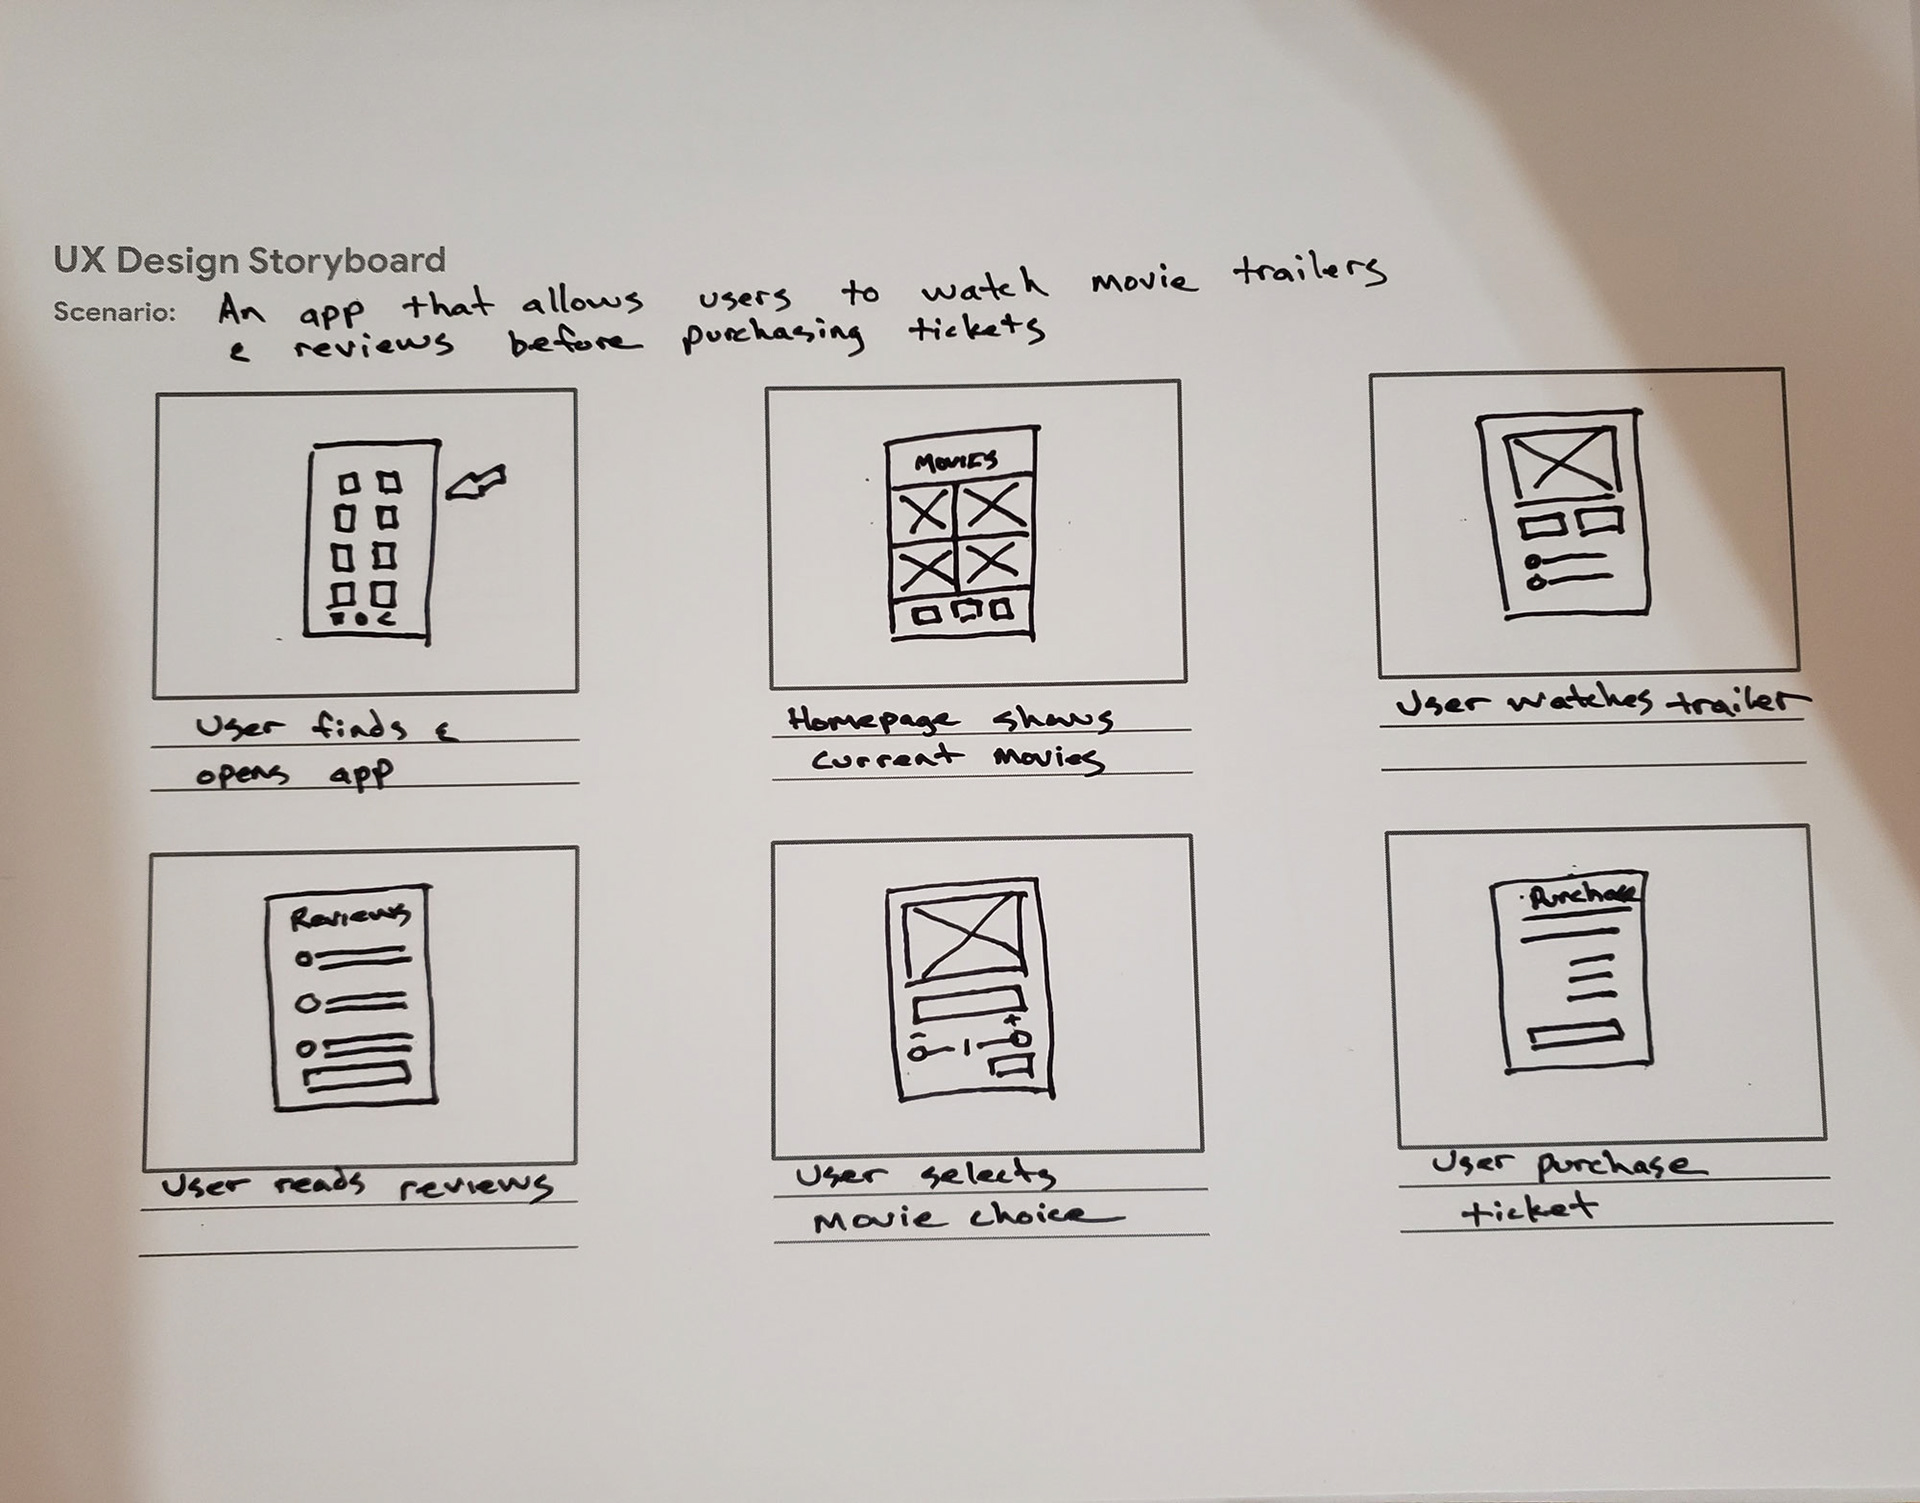 UX Design Storyboard
Scenario: An app that allows users to watch movie trailers
& reviews before purchasing tickets
MOVIES
User finds &
opens app
Homepage shows
current movies
User watches trailer
Reviews
- +
1
Purchase
User reads reviews
User selects
movie choice
User purchase
ticket